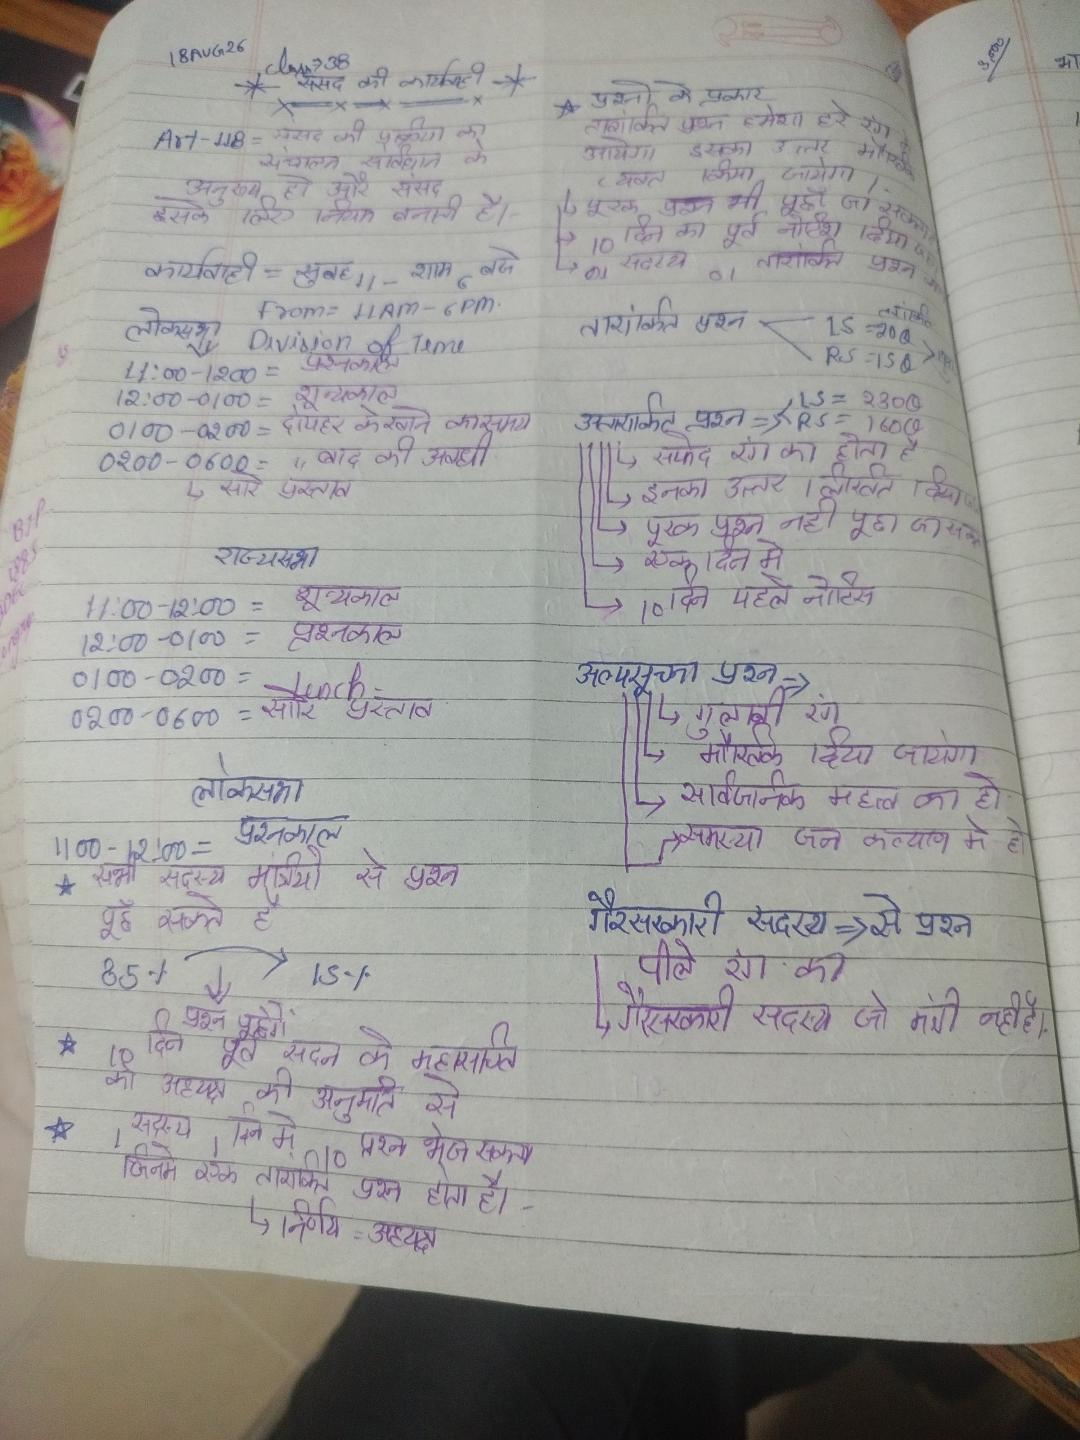 18AUG26
class→38
संसद की कार्यवाही
Art-118 = संसद की प्रक्रिया का
संचालन संविधान के
अनुरूप हो और संसद
इसके लिए नियम बनाती है।-
कार्यवाही = सुबह 11 - शाम 6 बजे
From= 11AM-6PM.
लोकसभा Division of Teme
11:00-1200 = प्रश्नकाल
12:00-0100 = शून्यकाल
0100-0200 = दोपहर के खाने का समय
0200-0600 = " बाद की अवधी
↳ सारे प्रस्ताव
राज्यसभा
11:00-12:00 = शून्यकाल
12:00-0100 = प्रश्नकाल
0100-0200 = Lunch-
0200-0600 = सारे प्रस्ताव
लोकसभा
1100-12:00 = प्रश्नकाल
★ सभी सदस्य मंत्रियो से प्रश्न
पूछ सकते है
85% → 15%
प्रश्न पूछेगें
★ 10 दिन पूर्व सदन के महासचिव
को अध्यक्ष की अनुमति से
★ 1 सदस्य 1 दिन मे 10 प्रश्न भेज सकता
जिनमे एक तारांकित प्रश्न होता है।-
↳ निर्णय = अध्यक्ष
★ प्रश्नो के प्रकार
तारांकित प्रश्न हमेशा हरे रंग मे
आयेगा इसका उत्तर मौखिक
व्यक्त किया जायेगा।
↳ पूरक प्रश्न भी पूछा जा सकता
→ 10 दिन का पूर्व नोटिस दिया
→ 01 सदस्य 01 तारांकित प्रश्न
तारांकित प्रश्न
LS = 20Q
RS = 15Q
अतारांकित प्रश्न => LS = 230Q
RS = 160Q
↳ सफेद रंग का होता है
→ इनका उत्तर लिखित दिया
→ पूरक प्रश्न नही पूछा जा
→ एक दिन मे
→ 10 दिन पहले नोटिस
अल्पसूचना प्रश्न =>
↳ गुलाबी रंग
→ मौखिक दिया जायेगा
→ सार्वजनिक महत्व का हो
→ समस्या जन कल्याण मे हो
गैरसरकारी सदस्य => से प्रश्न
पीले रंग का
↳ गैरसरकारी सदस्य जो मंत्री नही है।
3,500
BJP